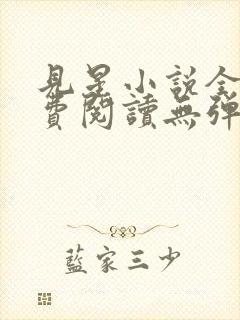 見星小說全
費閱讀無彈
藍家三少